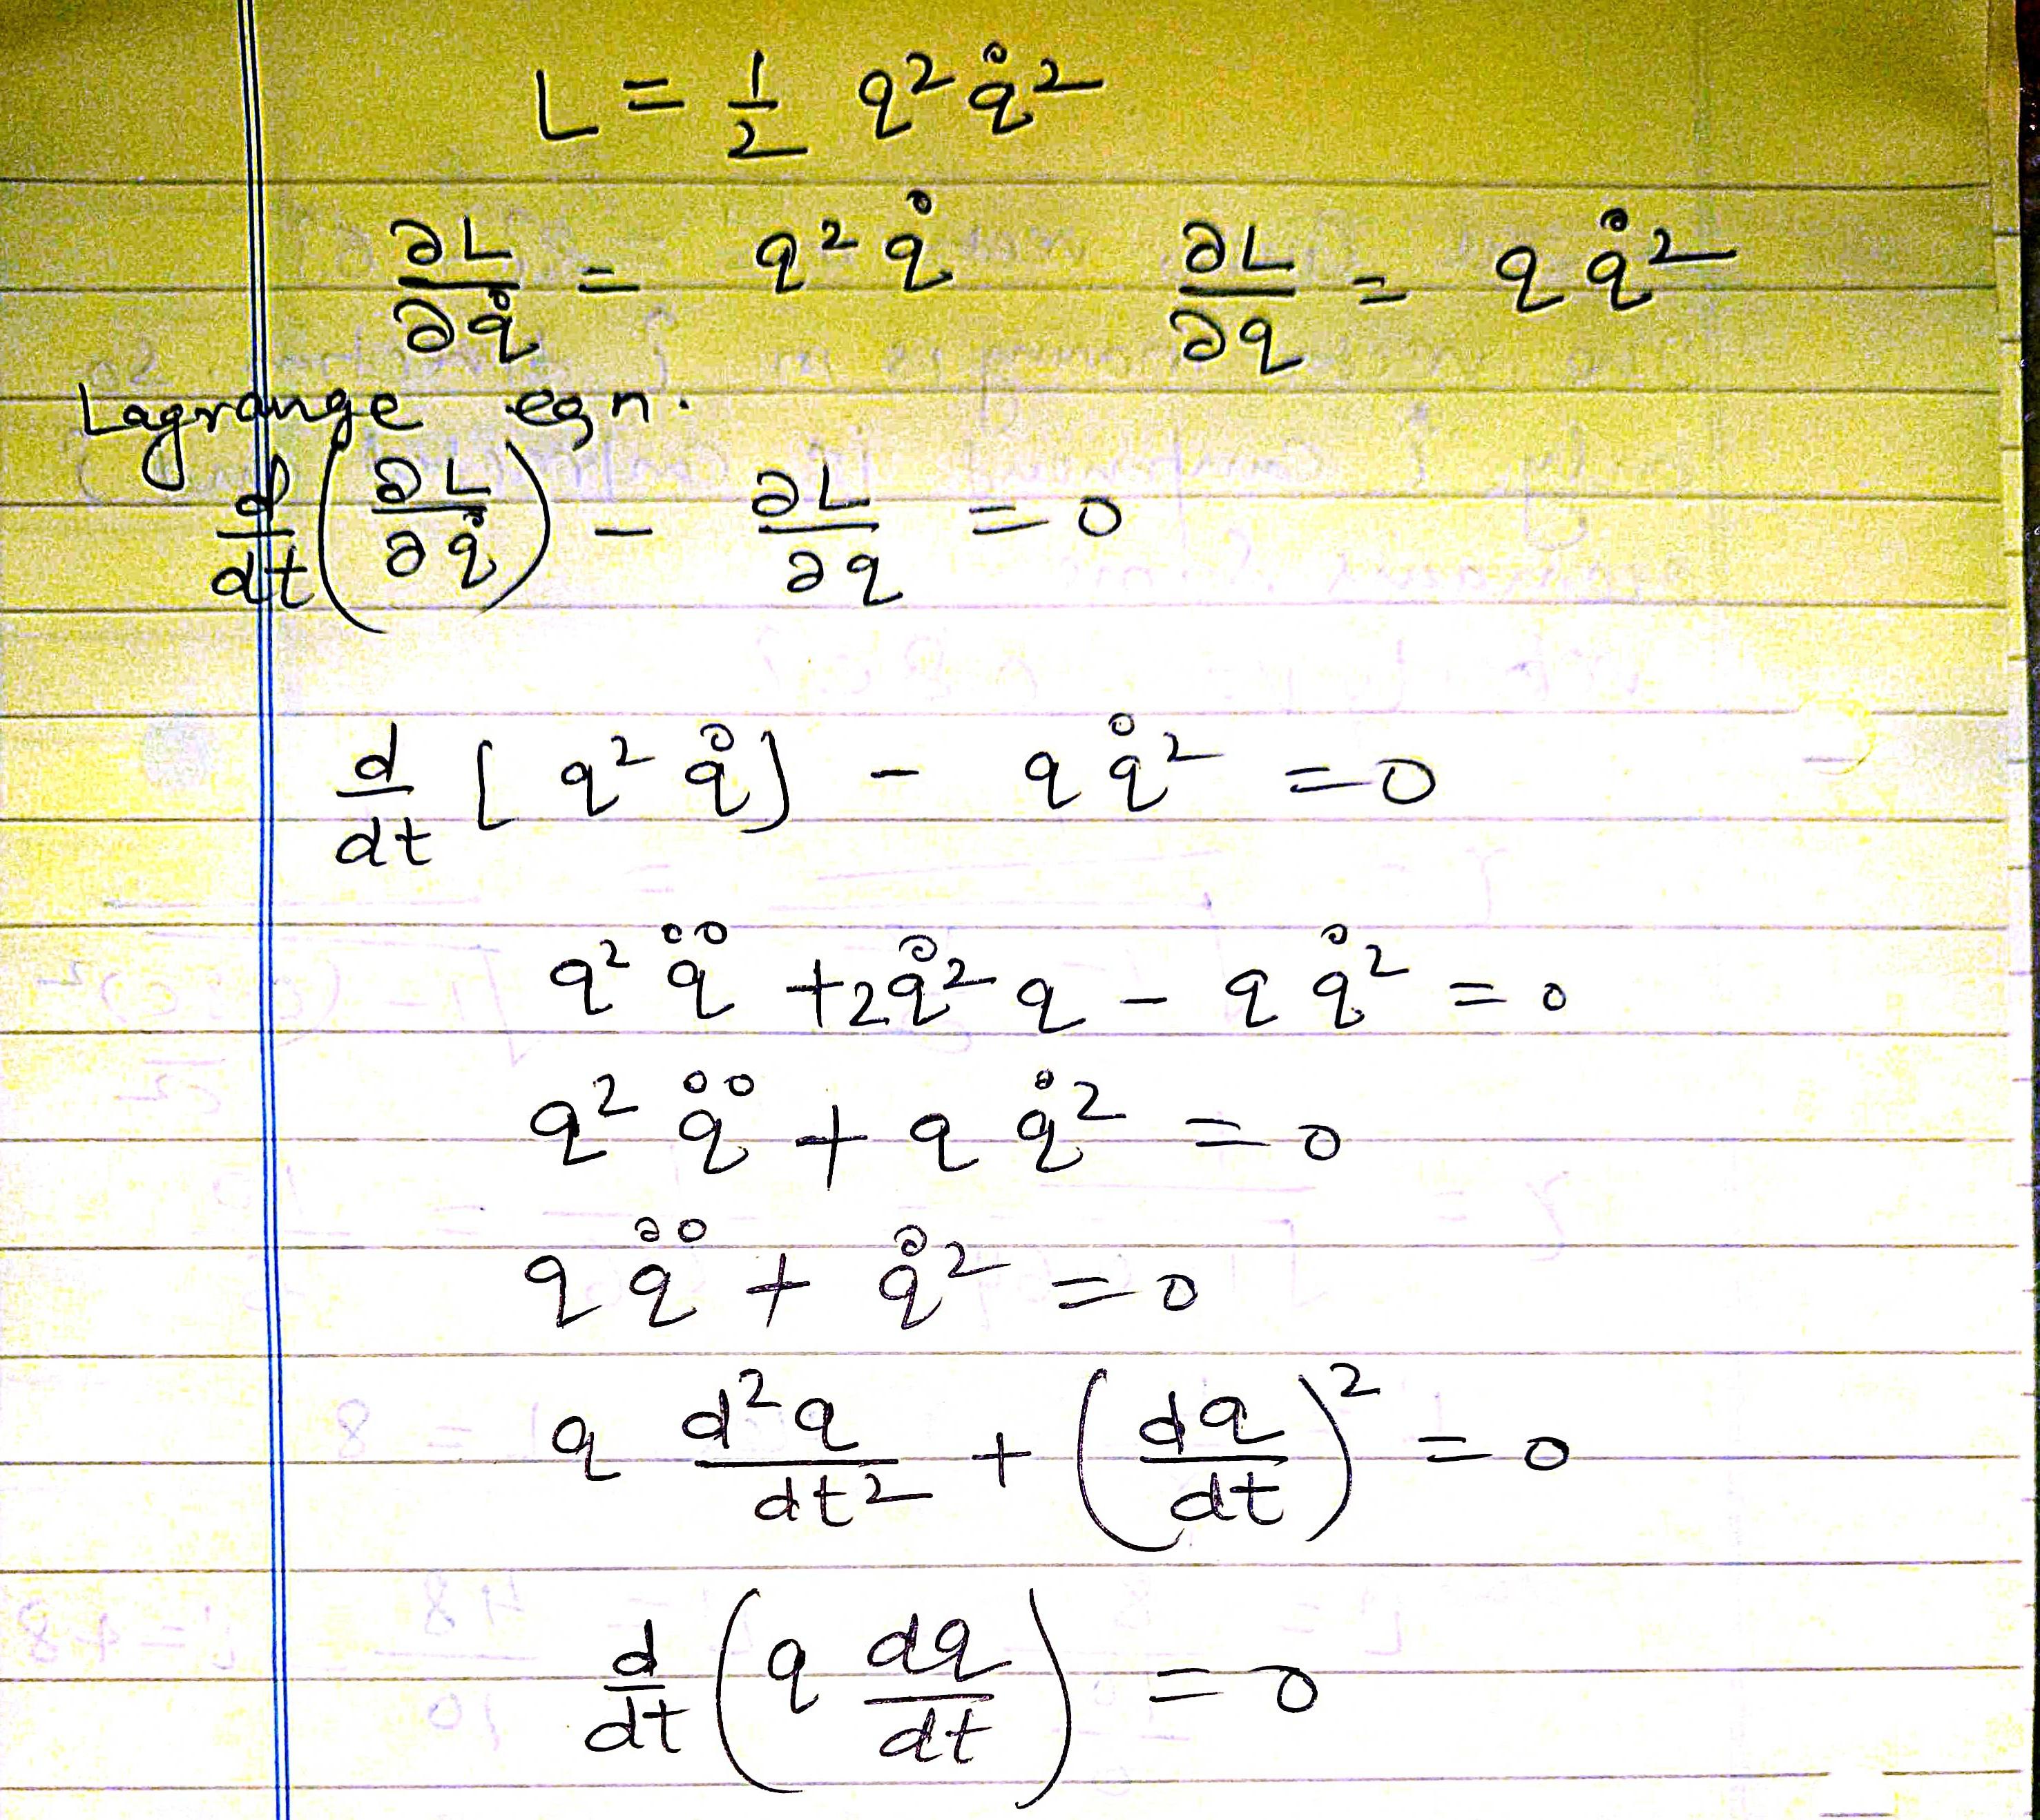 L = 1/2 q² q̇²
∂L/∂q̇ = q² q̇    ∂L/∂q = q q̇²
Lagrange eqn.
d/dt (∂L/∂q̇) - ∂L/∂q = 0
d/dt [q² q̇] - q q̇² = 0
q² q̈ + 2q̇² q - q q̇² = 0
q² q̈ + q q̇² = 0
q q̈ + q̇² = 0
q d²q/dt² + (dq/dt)² = 0
d/dt (q dq/dt) = 0